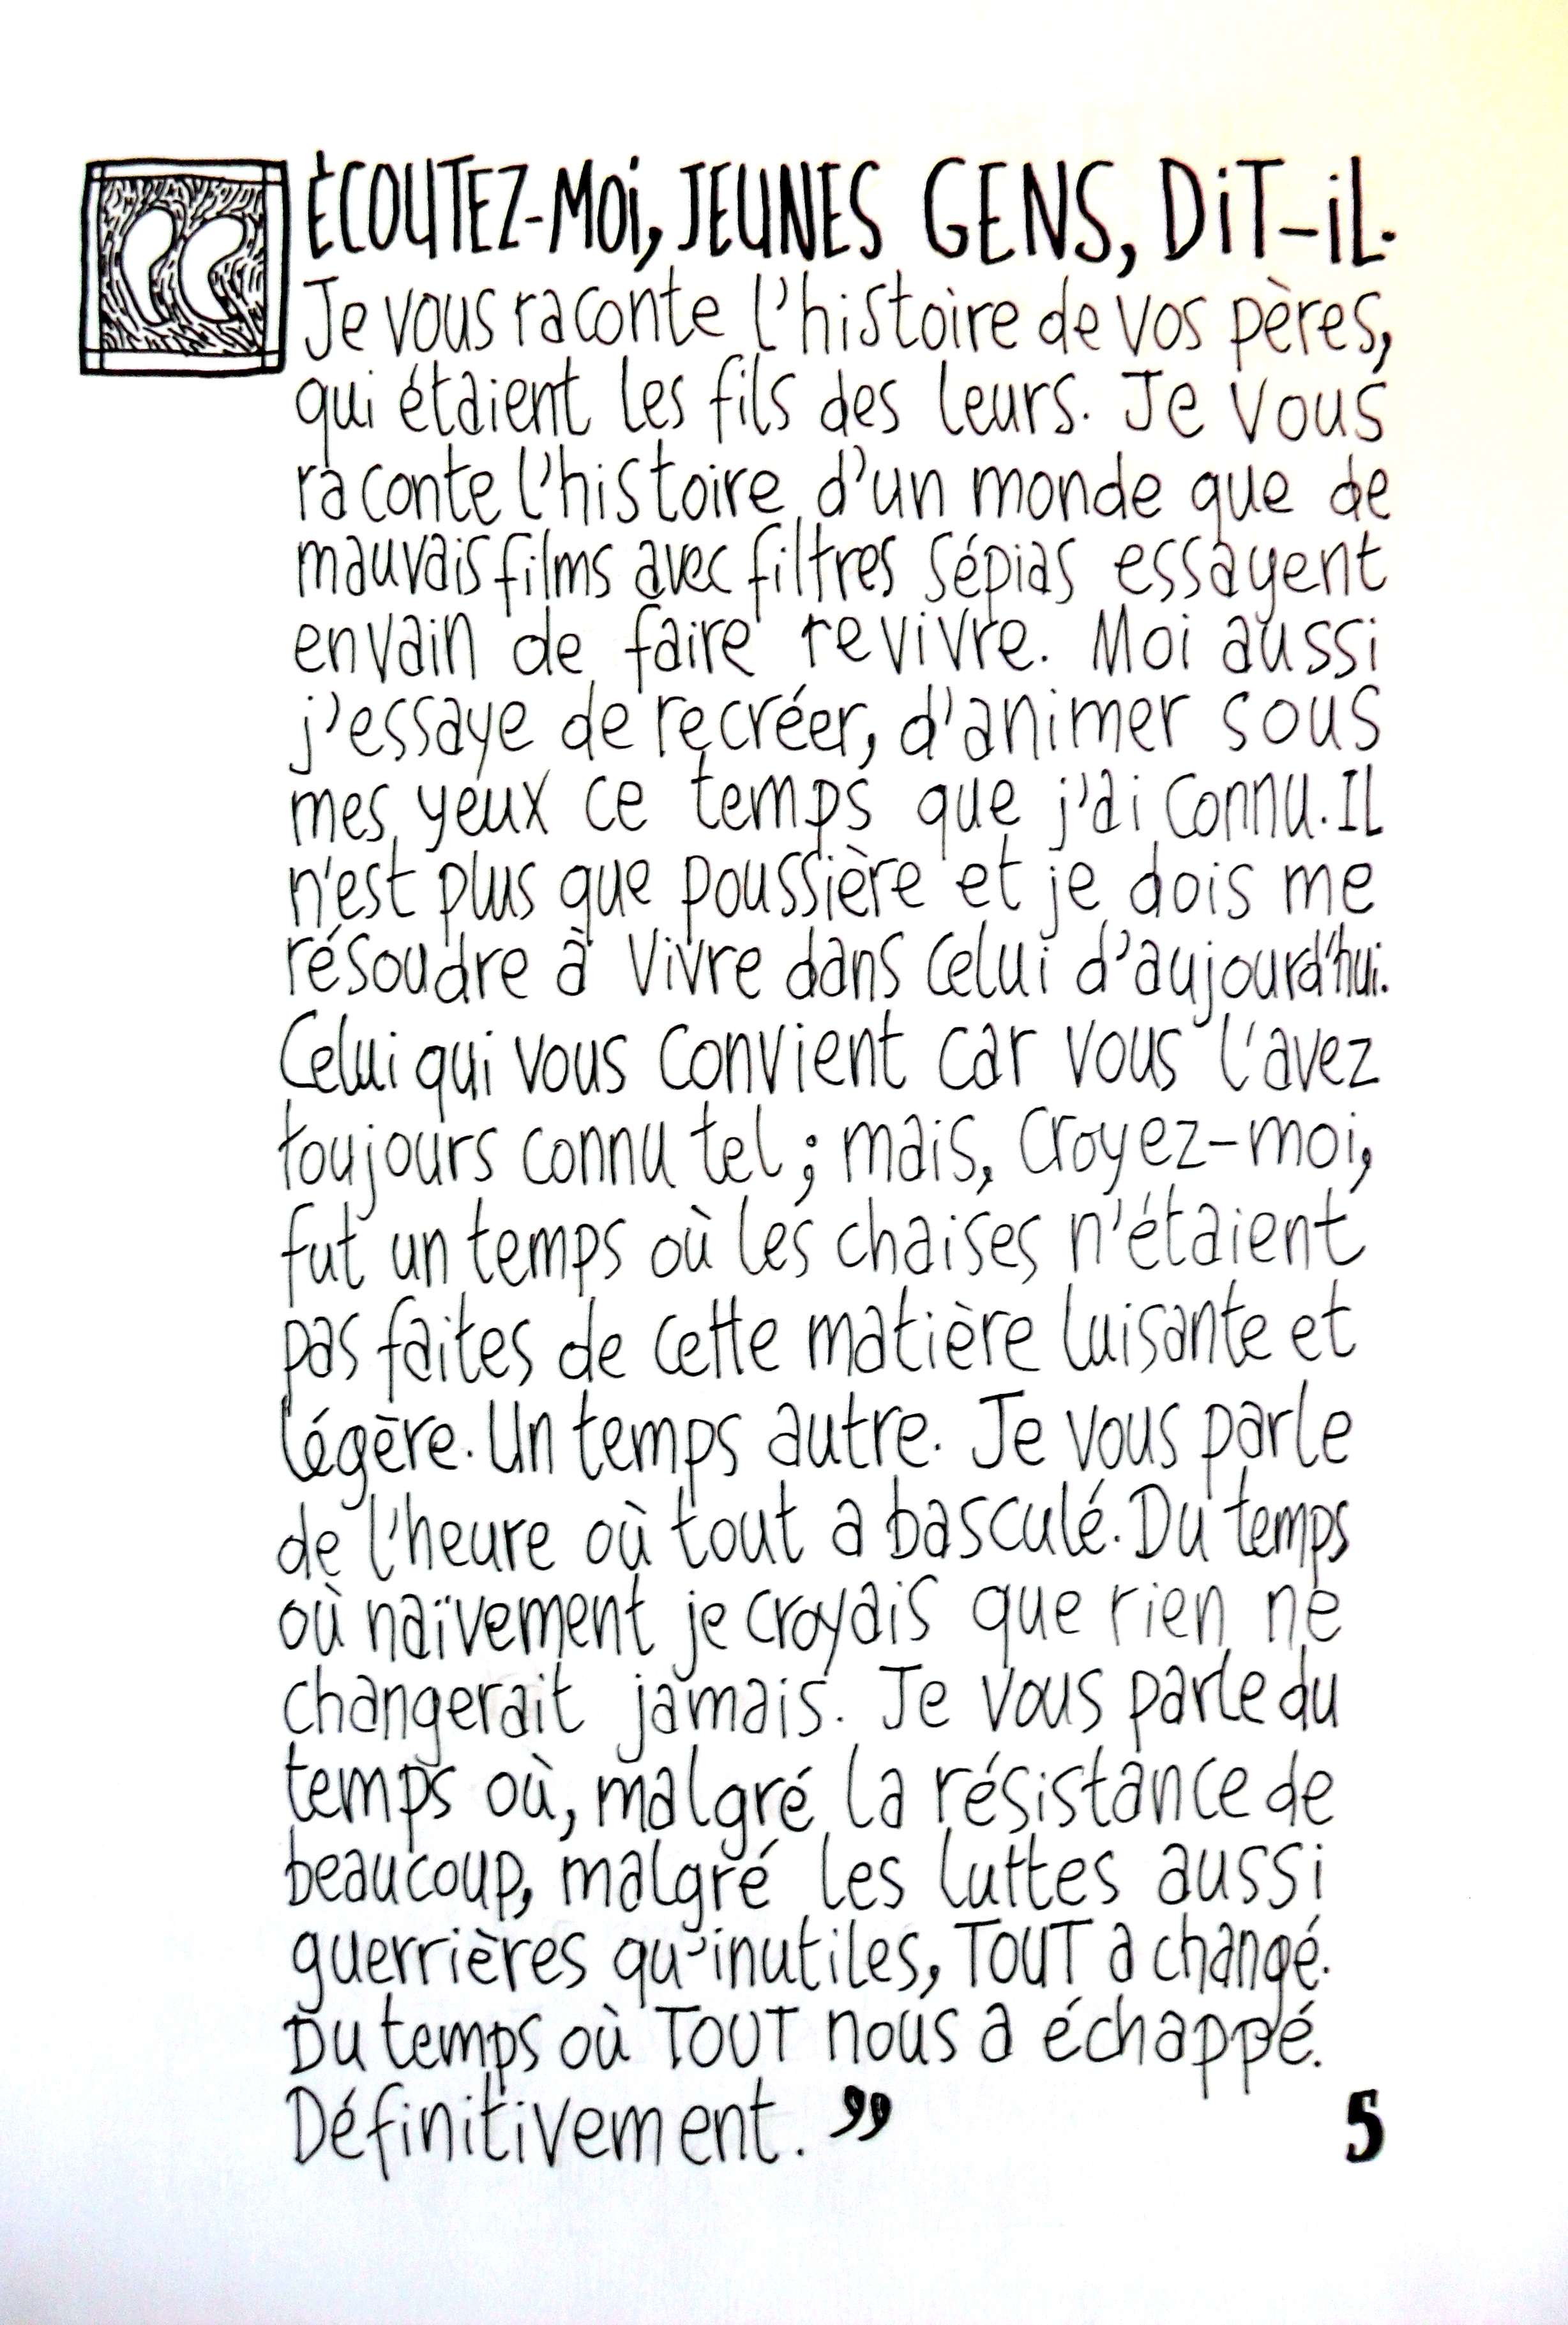 “ÉCOUTEZ-MOi, JEUNES GENS, DiT-iL.
Je vous raconte l'histoire de vos pères,
qui étaient les fils des leurs. Je vous
raconte l'histoire d'un monde que de
mauvais films avec filtres sépias essayent
en vain de faire revivre. Moi aussi
j'essaye de recréer, d'animer sous
mes yeux ce temps que j'ai connu. Il
n'est plus que poussière et je dois me
résoudre à vivre dans celui d'aujourd'hui.
Celui qui vous convient car vous l'avez
toujours connu tel ; mais, croyez-moi,
fut un temps où les chaises n'étaient
pas faites de cette matière luisante et
légère. Un temps autre. Je vous parle
de l'heure où tout a basculé. Du temps
où naïvement je croyais que rien ne
changerait jamais. Je vous parle du
temps où, malgré la résistance de
beaucoup, malgré les luttes aussi
guerrières qu'inutiles, TOUT a changé.
Du temps où TOUT nous a échappé.
Définitivement. ”
5